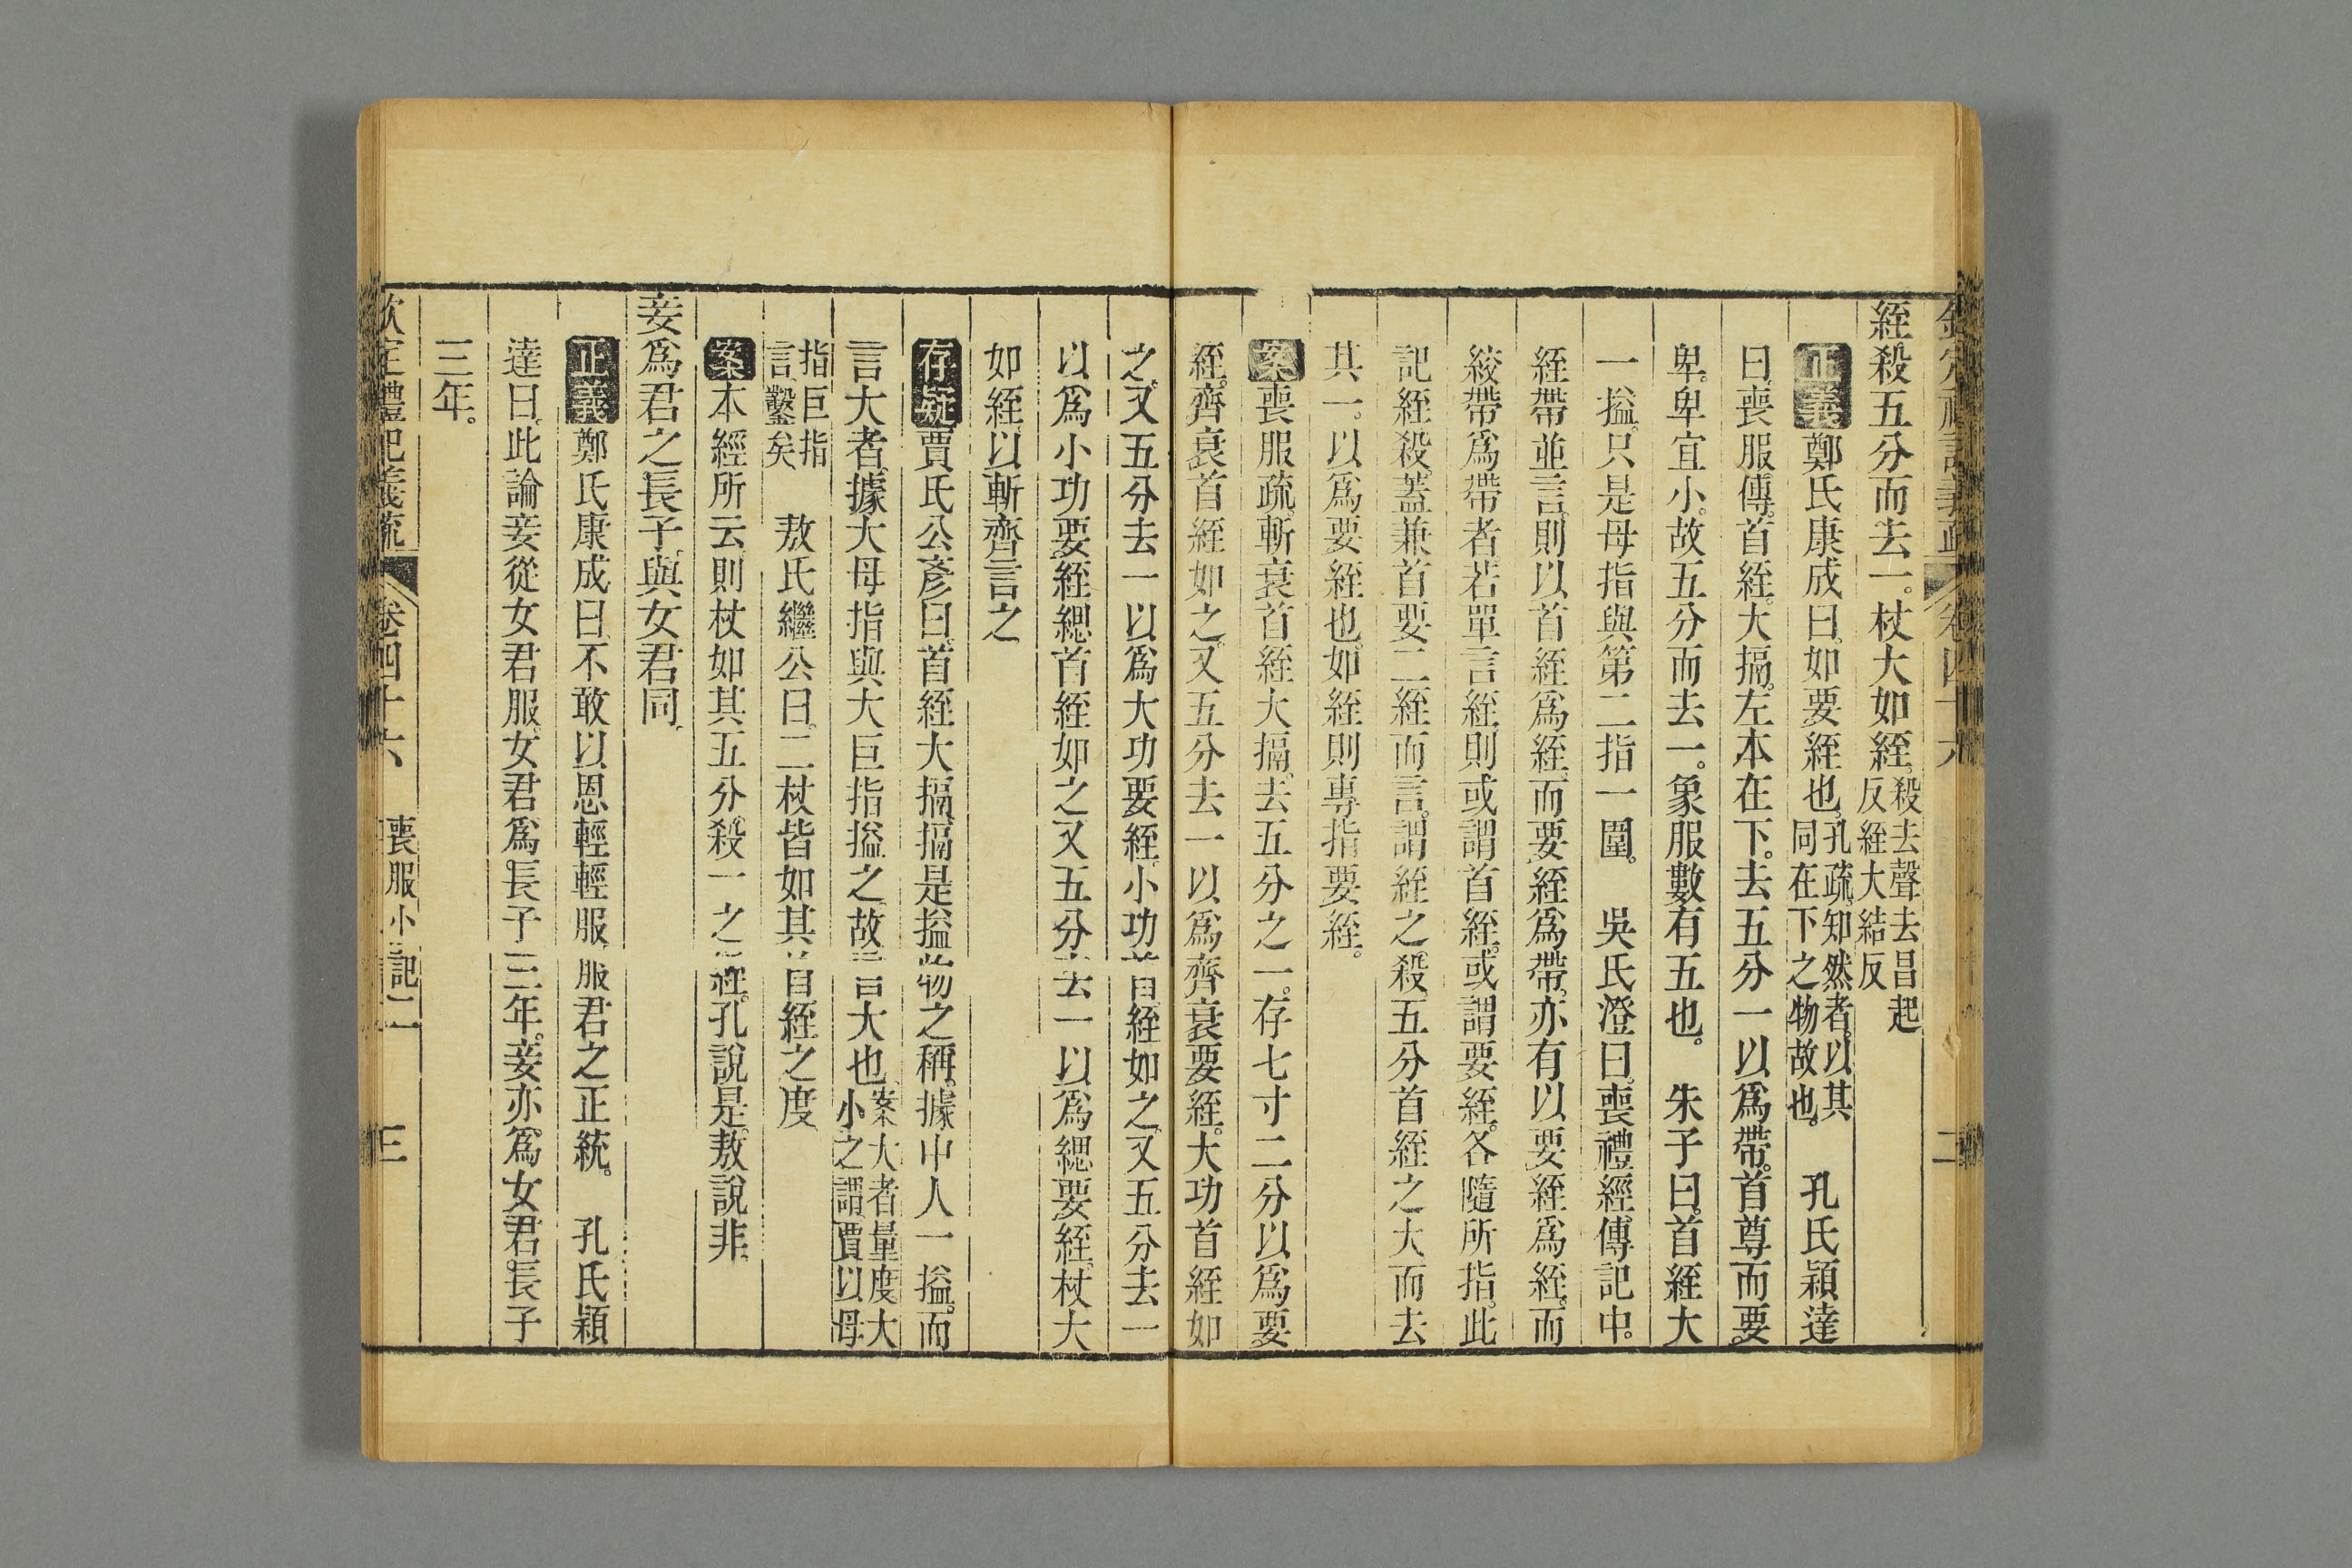 欽定禮記義疏 卷四十六 二
絰殺五分而去一。杖大如絰。殺去聲去昌起反絰大結反
正義鄭氏康成曰。如要絰也。孔疏。知然者。以其同在下之物故也。 孔氏穎達
曰。喪服傳。首絰。大搹。左本在下。去五分一以爲帶。首尊而要
卑。卑宜小。故五分而去一。象服數有五也。 朱子曰。首絰大
一搤。只是母指與第二指一圍。 吳氏澄曰。喪禮經。傳記中。
絰帶並言。則以首絰爲絰。而要絰爲帶。亦有以要絰爲絰。而
絞帶爲帶者。若單言絰。則或謂首絰。或謂要絰。各隨所指。此
記絰殺。蓋兼首要二絰而言。謂絰之殺。五分首絰之大而去
其一。以爲要絰也。如絰則專指要絰。
案喪服疏。斬衰首絰大搹。去五分之一。存七寸二分以爲要
絰。齊衰首絰如之。又五分去一以爲齊衰要絰。大功首絰如
之。又五分去一以爲大功要絰。小功首絰如之。又五分去一
以爲小功要絰緦首絰如之又五分去一以爲緦要絰。杖大
如絰。以斬齊言之
存疑賈氏公彥曰。首絰大搹。搹是搤物之稱。據中人一搤。而
言大者。據大母指與大巨指搤之。故言大也。案大者量度大小之謂。賈以母
指巨指言。鑿矣。 敖氏繼公曰。二杖皆如其首絰之度。
案本經所云。則杖如其五分。殺一之絰。孔說是。敖說非。
妾爲君之長子。與女君同。
正義鄭氏康成曰。不敢以恩輕輕服。服君之正統。 孔氏穎
達曰。此論妾從女君服。女君爲長子三年。妾亦爲女君。長子
三年。
欽定禮記義疏 卷四十六 喪服小記二 三